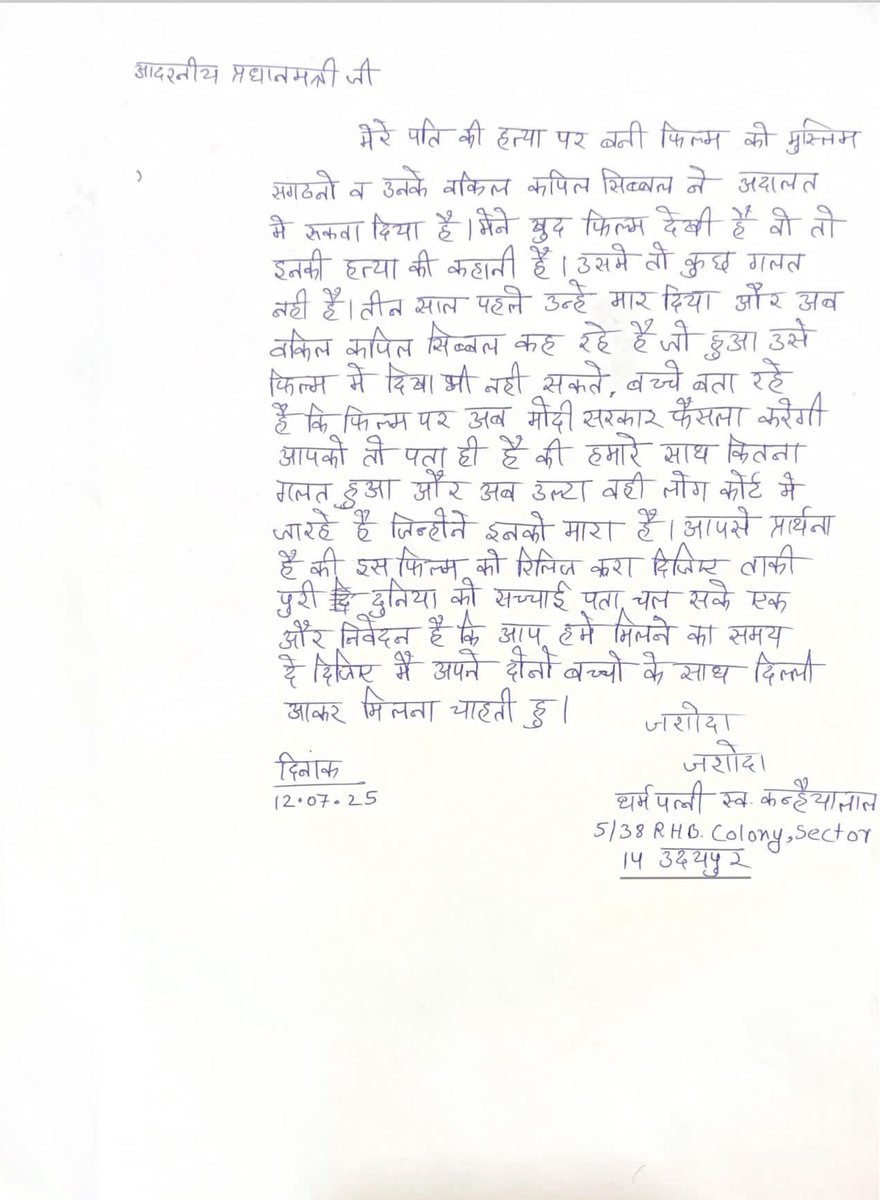 आदरनीय प्रधानमत्री जी
मेरे पति की हत्या पर बनी फिल्म को मुस्लिम
सगठनो व उनके वकिल कपिल सिब्बल ने अदालत
मे रूकवा दिया है। मेने खुद फिल्म देखी है वो तो
इनकी हत्या की कहानी है। उसमे तो कुछ गलत
नही है। तीन साल पहले उन्हे मार दिया और अब
वकिल कपिल सिब्बल कह रहे है जो हुआ उसे
फिल्म मे दिखा भी नही सकते, बच्चे बता रहे
है कि फिल्म पर अब मोदी सरकार फैसला करेगी
आपको तो पता ही है की हमारे साथ कितना
गलत हुआ और अब उल्टा वही लोग कोर्ट मे
जा रहे है जिन्होने इनको मारा है। आपसे प्रार्थना
है की इस फिल्म को रिलिज करा दिजिए ताकी
पुरी दुनिया को सच्चाई पता चल सके एक
और निवेदन है कि आप हमे मिलने का समय
दे दिजिए मै अपने दोनो बच्चो के साथ दिल्ली
आकर मिलना चाहती हु।
जशोदा
जशोदा
धर्मपत्नी स्व. कन्हैयालाल
5/38 RHB. Colony, Sector
14 उदयपुर
दिनांक
12.07.25